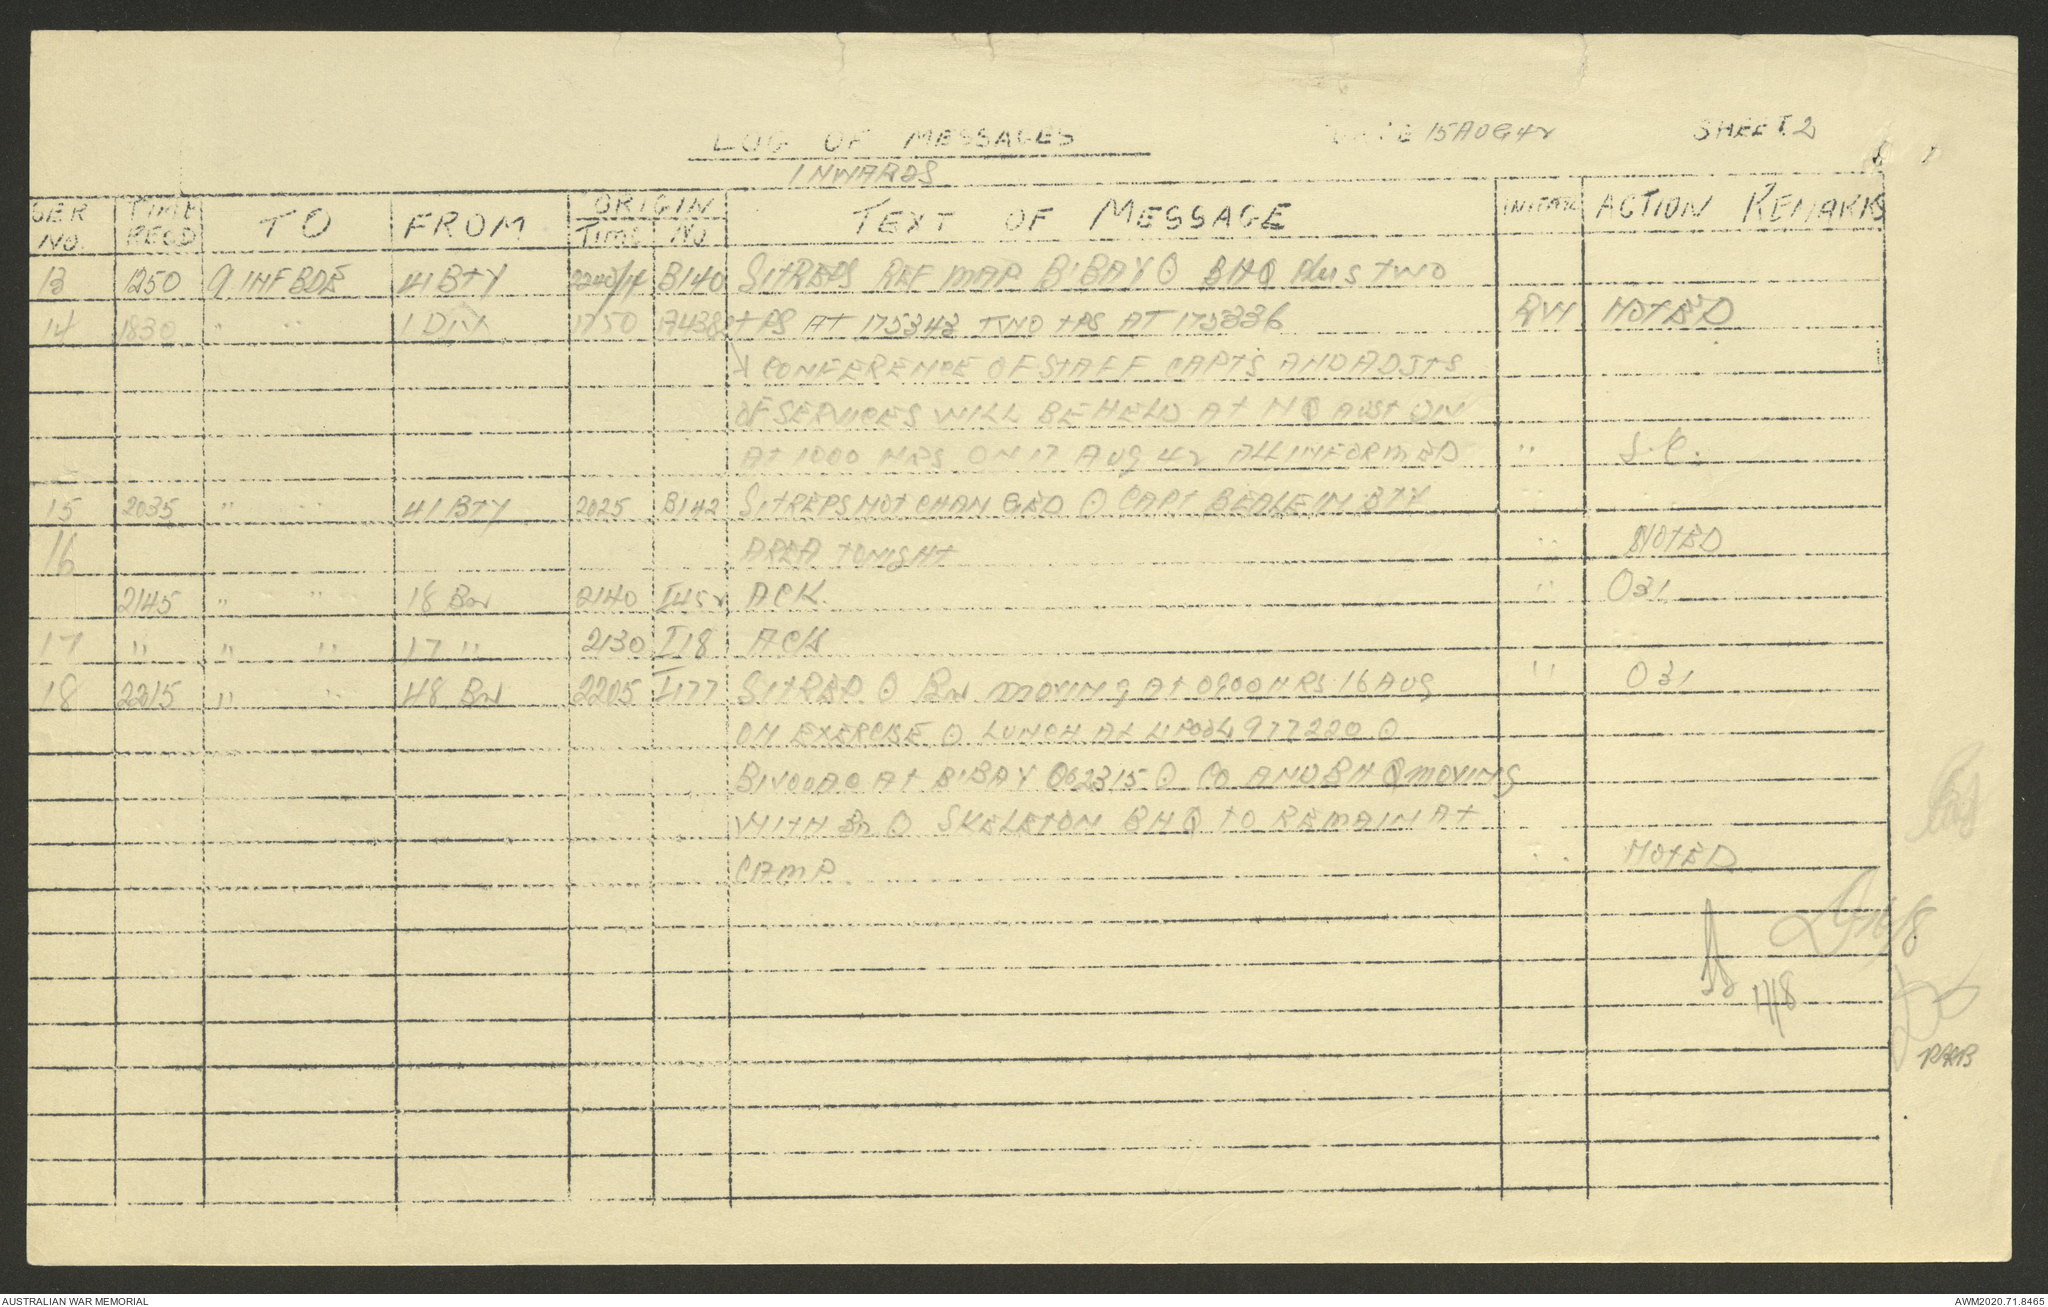 LOG OF MESSAGES DATE 15 AUG 42 SHEET 2
INWARDS
SER NO. TIME RECD TO FROM ORIGIN TIME NO TEXT OF MESSAGE INITIAL ACTION REMARKS
13 1250 9 INF BDE 41 BTY 2240/14 B140 SITREPS REF MAP BIBAY ⊙ BHQ Plus TWO
14 1830 " " 1 DIV 1750 A438 TPS AT 175343 TWO TPS AT 175336 RVH NOTED
CONFERENCE OF STAFF CAPTS AND ADJTS
OF SERVICES WILL BE HELD AT HQ AUST DIV
AT 1000 HRS ON 17 AUG 42 ALL INFORMED " S.C.
15 2035 " " 41 BTY 2025 B142 SITREPS NOT CHANGED ⊙ CAPT BEALE IN BTY
16 AREA TONIGHT " NOTED
2145 " " 18 Bn 2140 I452 ACK. " O31
17 " " " 17 " 2130 I18 ACK
18 2215 " " 48 Bn 2205 I177 SITREP ⊙ Bn MOVING AT 0900 HRS 16 AUG " O31
ON EXERCISE ⊙ LUNCH AT 977220 ⊙
BIVOUAC AT BIBAY 062315 ⊙ CO AND BHQ MOVING
WITH Bn ⊙ SKELETON BHQ TO REMAIN AT
CAMP " NOTED
16/8
17/8
AUSTRALIAN WAR MEMORIAL AWM2020.71.8465